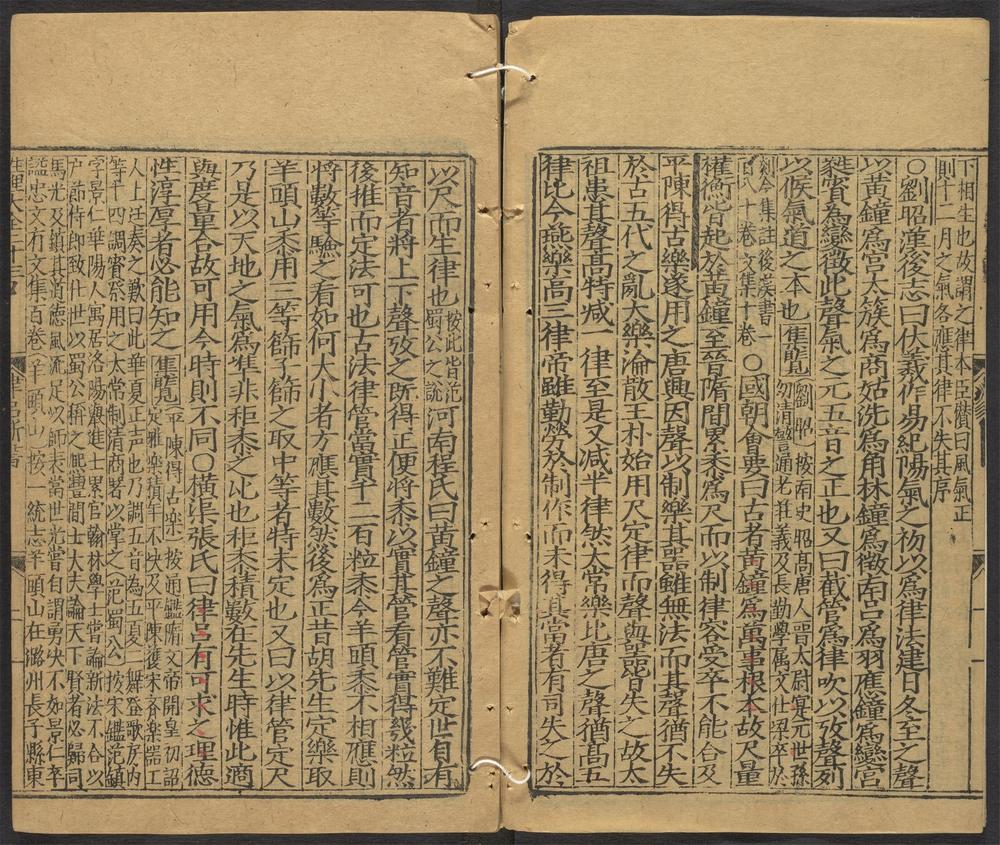 下相生也故謂之律本臣瓚曰風氣正
則十二月之氣各應其律不失其序
〇劉昭漢後志曰伏羲作易紀陽氣之初以為律法建日冬至之聲
以黃鐘為宮太簇為商姑洗為角林鐘為徵南呂為羽應鐘為變宮
蕤賓為變徵此聲氣之元五音之正也又曰截管為律吹以攷聲列
以候氣道之本也 集覽 劉昭 按南史昭高唐人晋太尉寔元世孫
勿清警通老莊義及長勤學属文仕梁卒於
剡令集註後漢書一
百八十卷文集十卷 〇國朝會要曰古者黃鐘為萬事根本故尺量
權衡皆起於黃鐘至晉隋間累黍為尺而以制律容受卒不能合及
平陳得古樂遂用之唐興因聲以制樂其器雖無法而其聲猶不失
於古五代之亂大樂淪散王朴始用尺定律而聲與器皆失之故太
祖患其聲高特減一律至是又減半律然太常樂比唐之聲猶高五
律比今燕樂高三律帝雖勤勞於制作而未得其當者有司失之於
以尺而生律也 按此皆范
蜀公之說 河南程氏曰黃鐘之聲亦不難定世自有
知音者將上下聲攷之既得正便將黍以實其管看管實得幾粒然
後推而定法可也古法律管當實千二百粒黍今羊頭黍不相應則
將數等驗之看如何大小者方應其數然後為正昔胡先生定樂取
羊頭山黍用三等篩子篩之取中等者特未定也又曰以律管定尺
乃是以天地之氣為準非秬黍之比也秬黍積數在先生時惟此適
與度量合故可用今時則不同〇橫渠張氏曰律呂有可求之理德
性淳厚者必能知之 集覽 平陳得古樂 按通鑑隋文帝開皇初詔
定雅樂積年不快及平陳獲宋齊樂器工
人上廷奏之歎曰此華夏正声也乃調五音為五夏二舞登歌房内
等十四調賓祭用之太常制清商署以掌之 范蜀公 按宋鑑范鎮
字景仁華陽人寓居洛陽舉進士累官翰林學士嘗論新法不合以
户部侍郎致仕世以蜀公稱之熙豐間士大夫論天下賢者必歸司
馬光及鎮其道德風流足以師表當世光嘗自謂勇決不如景仁卒
謚忠文有文集百卷 羊頭山 按一統志羊頭山在潞州長子縣東